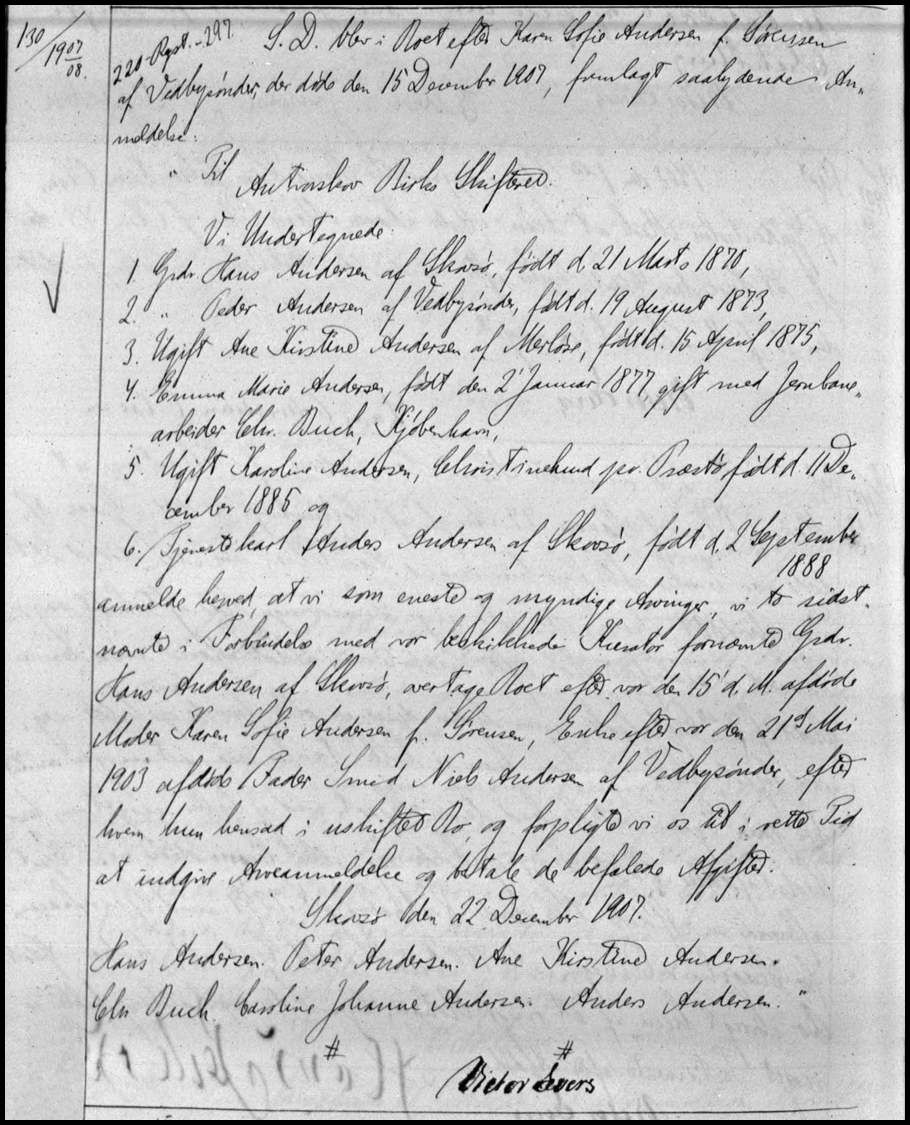 130/1907 08.
220. Rgst. - 297. S. D. blev i Boet efter Karen Sofie Andersen f. Sørensen
af Vedbysønder, der døde den 15 December 1907, fremlagt saalydende An„
meldelse:
" Til
Antvorskov Birks Skifteret.
Vi Undertegnede
1 Grdr. Hans Andersen af Skovsø, født d. 21 Marts 1870,
2. " Peder Andersen af Vedbysønder, født d. 19 August 1873,
3. Ugift Ane Kirstine Andersen af Merløse, født d. 15 April 1875,
4. Emma Marie Andersen, født den 2 Januar 1877 gift med Jernbane„
arbeider Chr. Buch, Kjøbenhavn,
5. Ugift Karoline Andersen, Christinelund pr. Præstø født d. 11 De„
cember 1885 og
6. Tjenestekarl Anders Andersen af Skovsø, født d. 2 September
1888
anmelde herved, at vi som eneste og myndige Arvinger, vi to sidst„
nævnte i Forbindelse med vor beskikkede Kurator fornævnte Grdr.
Hans Andersen af Skovsø, overtage Boet efter vor den 15' d. M. afdøde
Moder Karen Sofie Andersen f. Sørensen, Enke efter vor den 21d Mai
1903 afdøde Fader Smed Niels Andersen af Vedbysønder, efter
hvem hun hensad i uskiftet Bo, og forpligte vi os til i rette Tid
at indgive Arveanmeldelse og betale de befalede Afgifter.
Skovsø den 22 December 1907.
Hans Andersen. Peter Andersen. Ane Kirstine Andersen.
Chr Buch. Caroline Johanne Andersen. Anders Andersen."
# #
Victor Severs